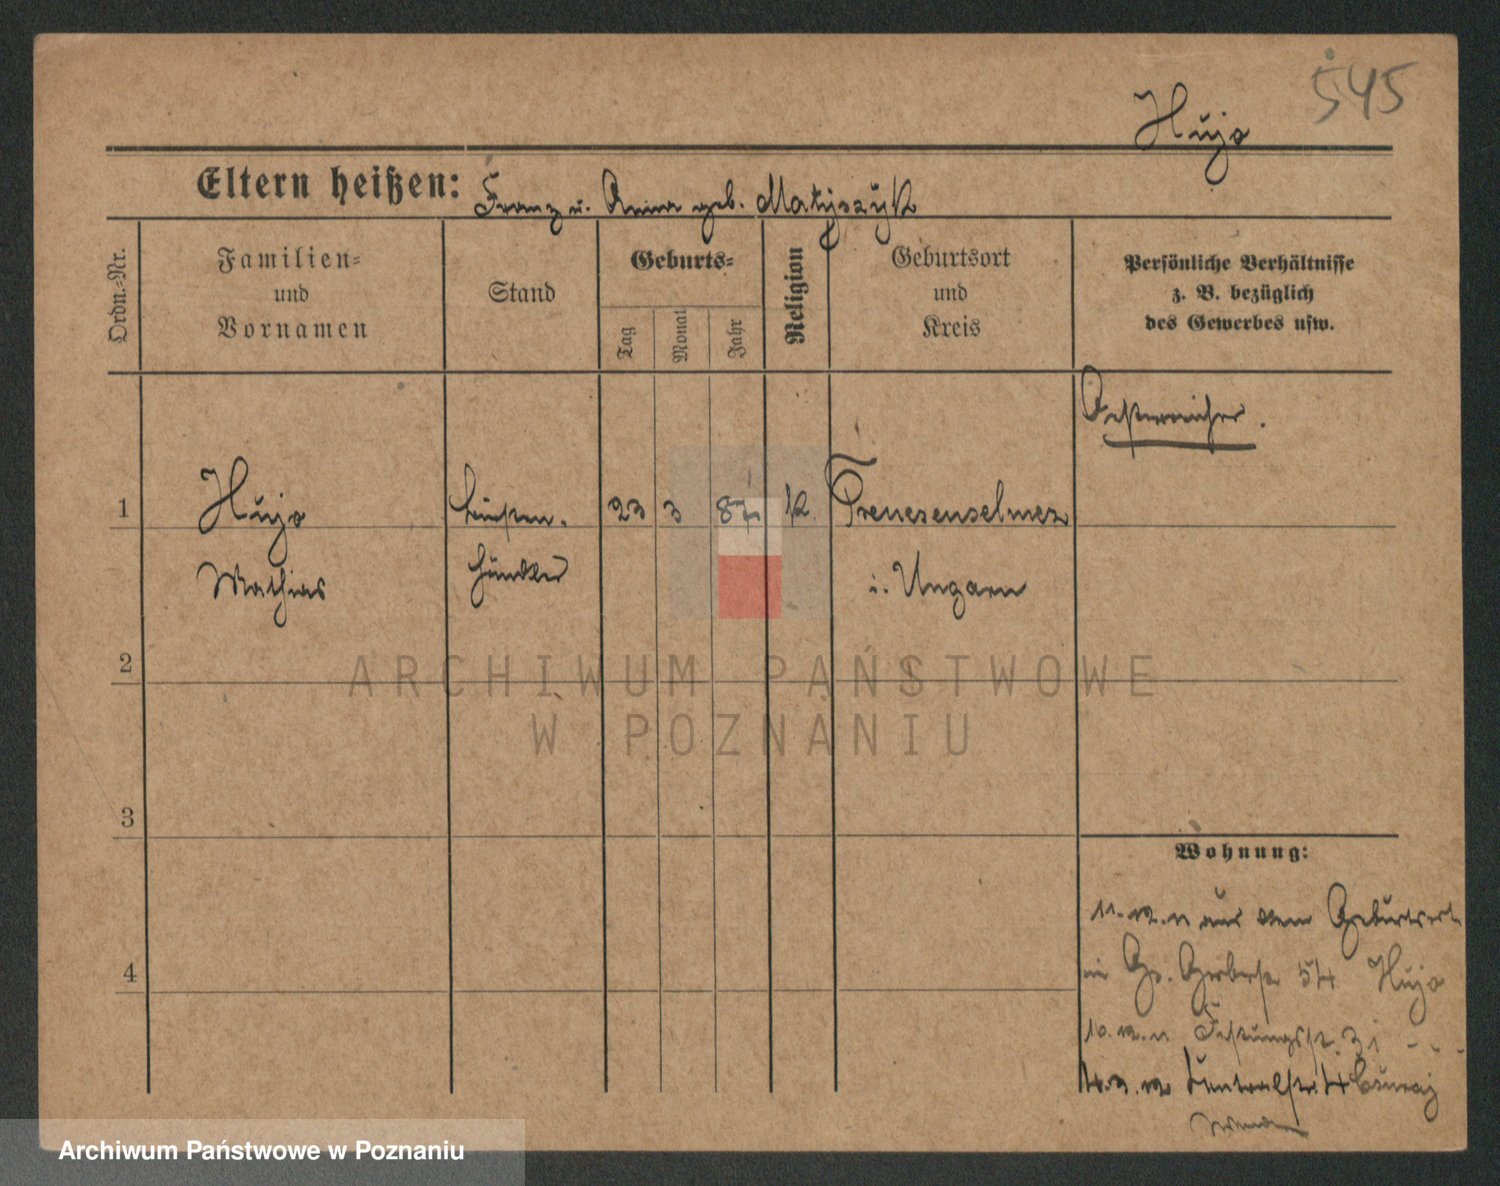 545
Hujo
Eltern heißen: Franz u. Anna geb. Matyszyk
Ordn.-Nr.
Familien-
und
Vornamen
Stand
Geburts-
Tag
Monat
Jahr
Religion
Geburtsort
und
Kreis
Persönliche Verhältnisse
z. B. bezüglich
des Gewerbes usw.
Oesterreicher.
1 Hujo 23 3 87 K. Trenesenselmez
Mathias händler i. Ungarn
2
ARCHIWUM PAŃSTWOWE
W POZNANIU
3
Wohnung:
11. 12. 11 aus dem Geburtsort
4
in Gr. Gerberstr 54 Hujo
10. 12. 11 Festungsstr. 31 - - -
14. 3. 12 4
Archiwum Państwowe w Poznaniu